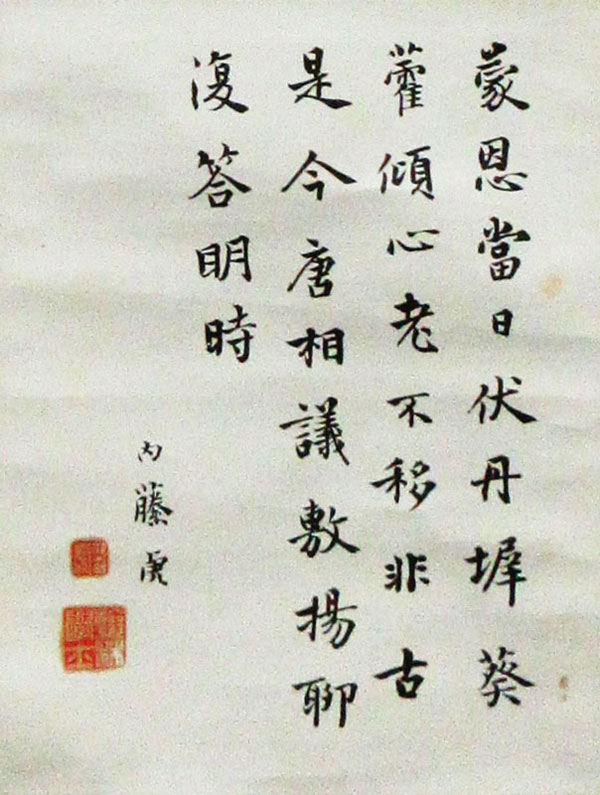 蒙恩當日伏丹墀葵
藿傾心老不移非古
是今唐相議敷揚聊
復答明時
内藤虎